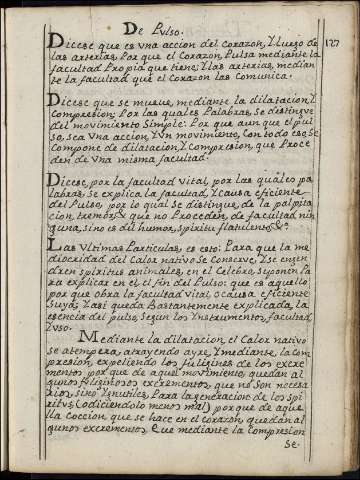 De Pulso.
127
Dicese que es vna accion del corazon, Y luego de
las arterias, Por que el Corazon, Pulsa mediante la
facultad Propia que tiene; Y las arterias, median
te la facultad que el Corazon las Comunica.
Dicese que se mueue, mediante la dilatacion, Y
Compresion, Por las quales Palabras, Se destingue
del mouimiento Simple: Por que aun que el pul
so, sea Vna accion, Y Vn mouimiento, Con todo eso, Se
Compone de dilatacion, Y Compresion, que Proce
den de Vna misma facultad.
Dicese, por la facultad vital, por las quales pa
labras, Se explica la facultad, Y Causa eficiente
del Pulso, por lo qual Se distingue, de la palpita
cion, tremor, & que no Proceden, de facultad nin
guna, sino es del humor, spiritu flatulento, &ª.
Las Vltimas Particulas, es esto: Para que la me
diocridad del Calor natiuo Se Conserue, Y se engen
dren spiritus animales, en el Celebro, suponen Pa
ra explicar en el el fin del Pulso: que es aquello
por que obra la facultad vital, o causa eficiente
suya, Y asi queda Bastantemente explicada, la
esencia del pulso, Segun los Ynstrumentos, facultad
Y vso.
Mediante la dilatacion, el Calor natiuo
se atempera, atrayendo ayre, Y mediante, la com
presion, expeliendo los fuligines de los excre
mentos, por que de aquel mouimiento, quedan al
gunos fuliginosos excrementos, que no son necesa
rios, sino Ynutiles, Para la generacion de los spi
ritus (o diciendolo menos mal) porque de aque
lla Coccion que se hace en el corazon, quedan al
gunos excrementos, que mediante la Compresion
Se.